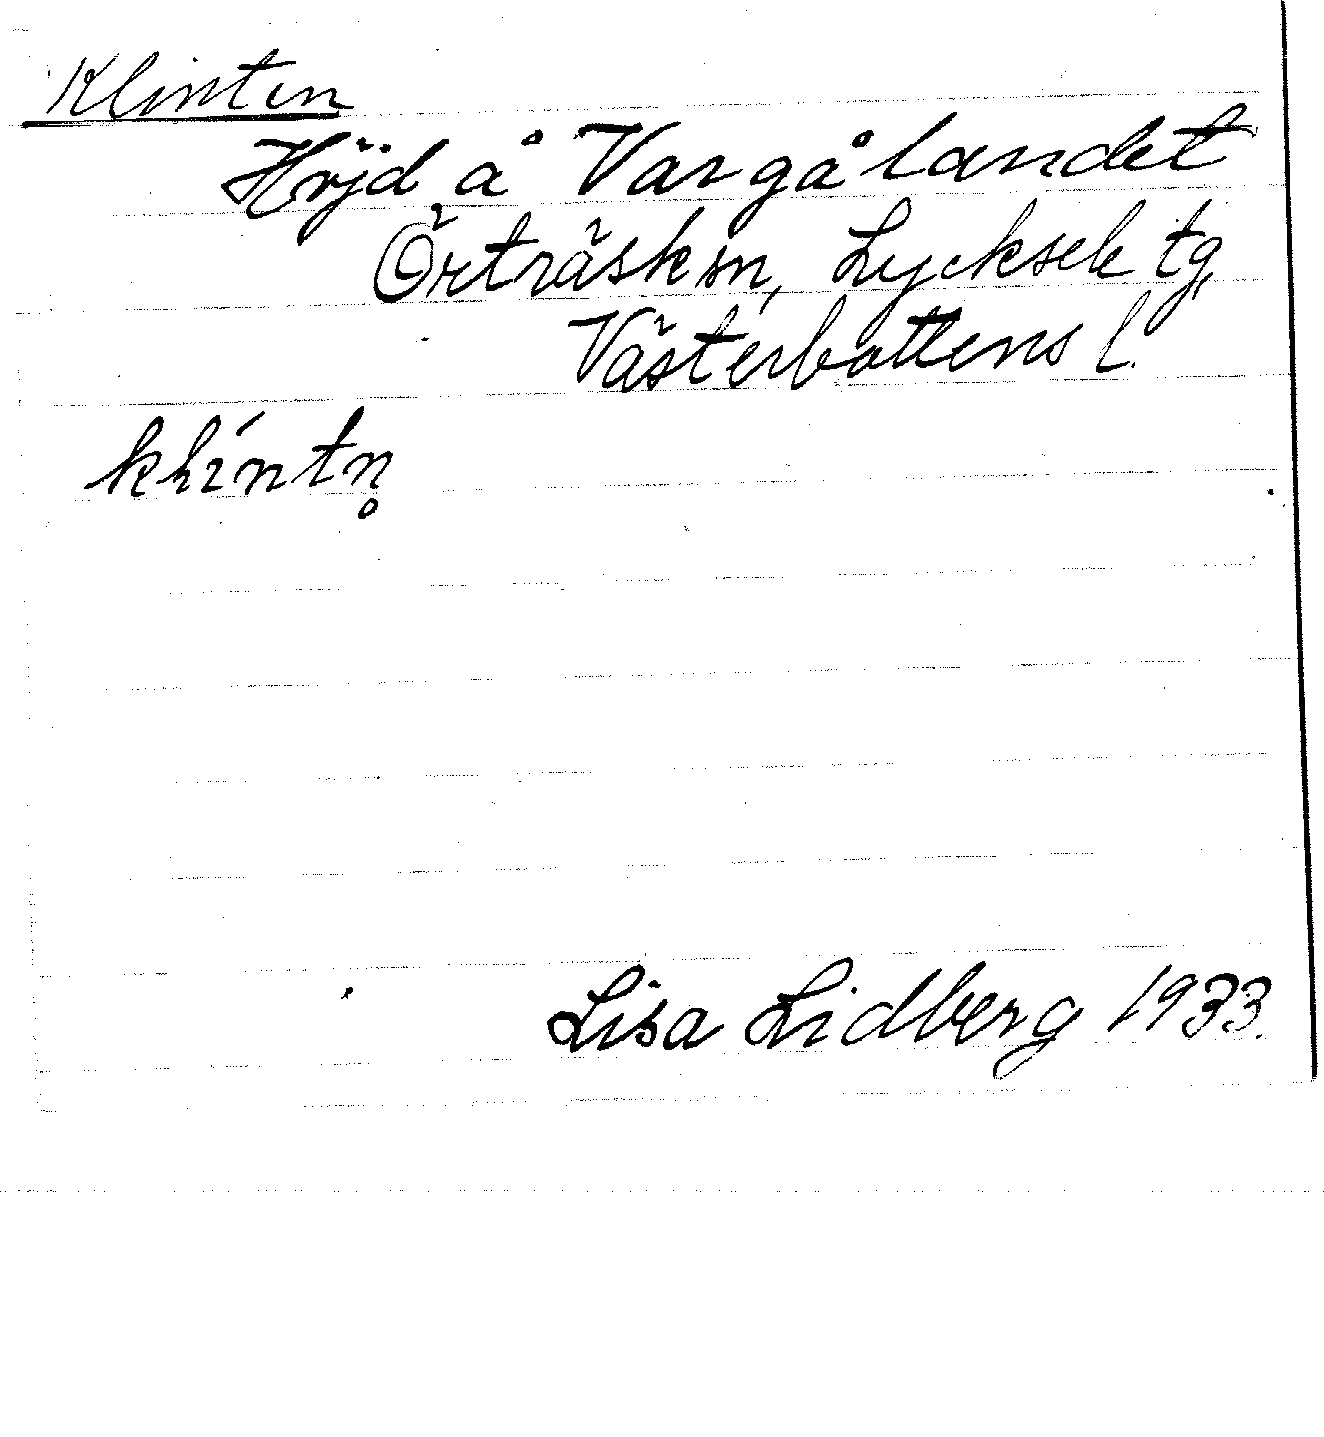 Klinten
Höjd å Vargålandet
Örträsk sn, Lycksele tg,
Västerbottens l.
khíntn̥
Lisa Lidberg 1933.